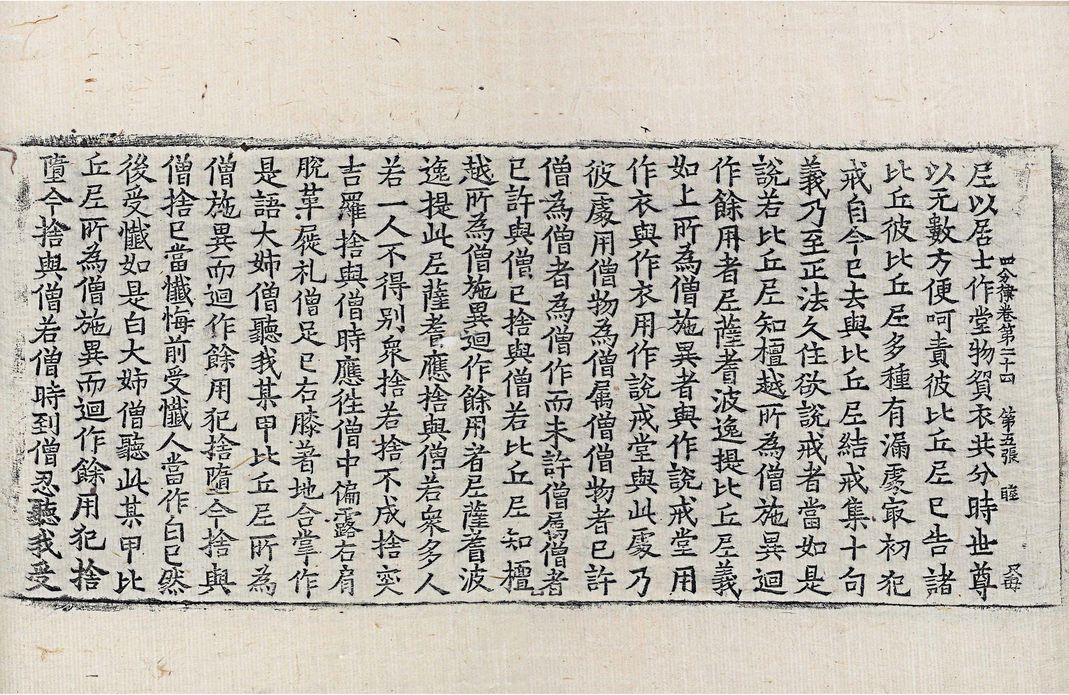 四分律卷第二十四 第五張 睦
尼以居士作堂物貿衣共分時世尊
以无數方便呵責彼比丘尼已告諸
比丘彼比丘尼多種有漏處冣初犯
戒自今已去與比丘尼結戒集十句
義乃至正法久住欲說戒者當如是
說若比丘尼知檀越所為僧施異迴
作餘用者尼薩耆波逸提比丘尼義
如上所為僧施異者與作說戒堂用
作衣與作衣用作說戒堂與此處乃
彼處用僧物為僧属僧僧物者已許
僧為僧者為僧作而未許僧属僧者
已許與僧已捨與僧若比丘尼知檀
越所為僧施異迴作餘用者尼薩耆波
逸提此尼薩耆應捨與僧若衆多人
若一人不得別衆捨若捨不成捨突
吉羅捨與僧時應徃僧中偏露右肩
脫革屣礼僧足已右膝著地合掌作
是語大姉僧聽我某甲比丘尼所為
僧施異而迴作餘用犯捨墮今捨與
僧捨已當懺悔前受懺人當作白已然
後受懺如是白大姉僧聽此某甲比
丘尼所為僧施異而迴作餘用犯捨
墮今捨與僧若僧時到僧忍聽我受